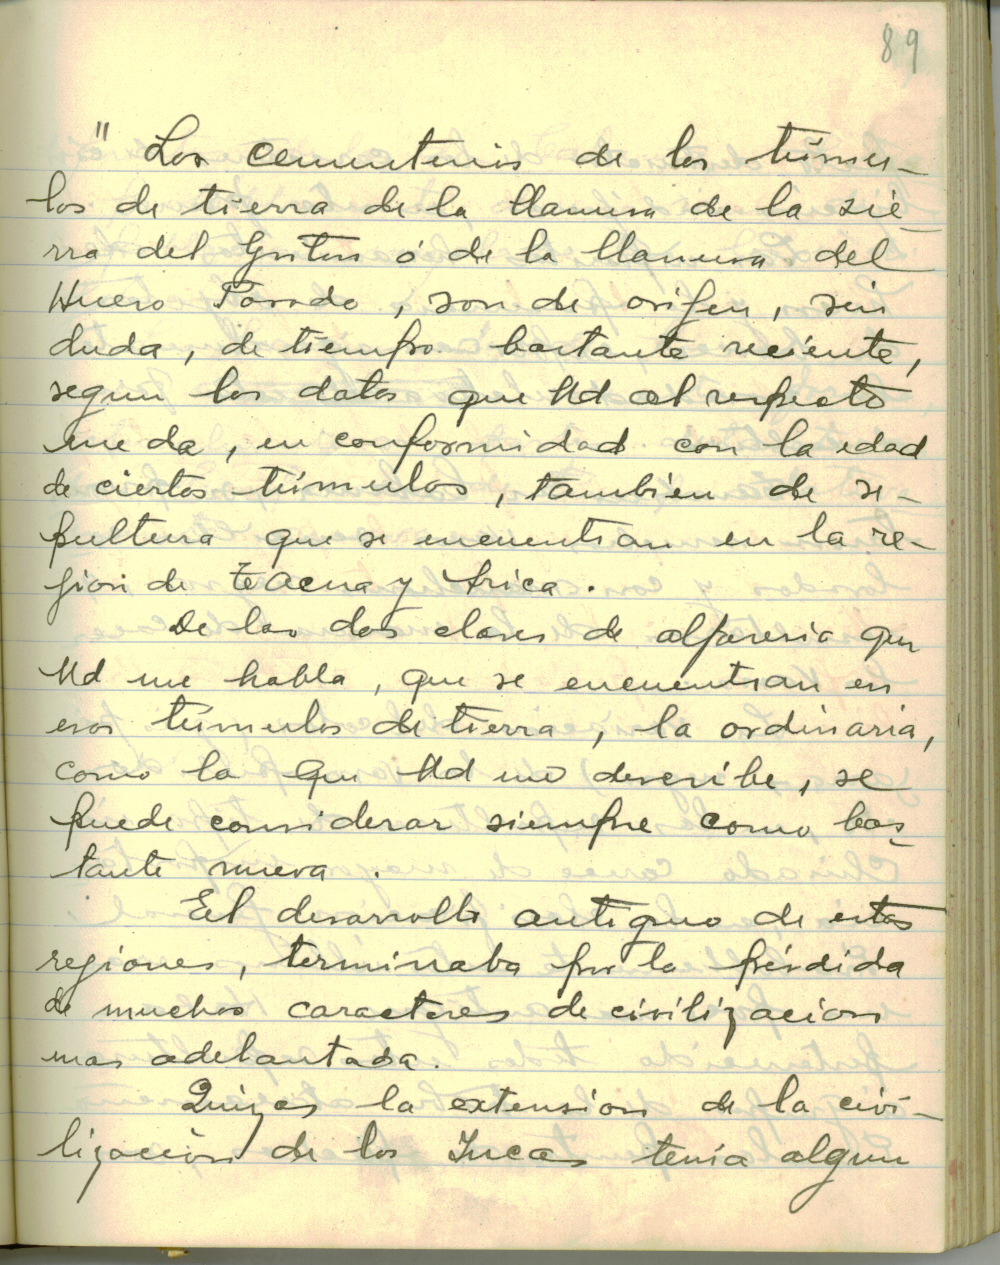 89
" Los cementerios de los túmu-
los de tierra de la llanura de la sie-
rra del Gritón ó de la llanura del
Huero Parado, son de orijen, sin
duda, de tiempo bastante reciente,
segun los datos que Ud al respecto
me da, en conformidad con la edad
de ciertos túmulos, tambien de se-
pultura que se encuentran en la re-
jion de Tacna y Arica.
De las dos clases de alfareria que
Ud me habla, que se encuentran en
esos túmulos de tierra, la ordinaria,
como la que Ud me describe, se
puede considerar siempre como bas-
tante nueva.
El desarrollo antiguo de estas
rejiones, terminaba por la pérdida
de muchos caracteres de civilizacion
mas adelantada.
Quizas la extension de la civi-
lización de los Incas tenía algun